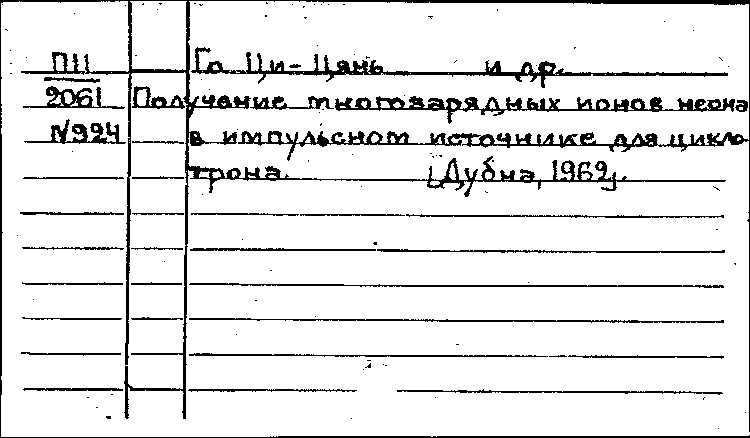 П11 Го Ци-Цянь и др.
2061 Получение многозарядных ионов неона
N924 в импульсном источнике для цикло-
трона. [Дубна, 1962].